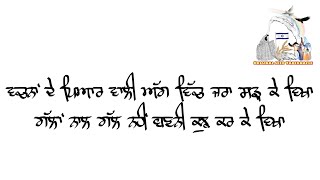 ਵਤਨਾਂ ਦੇ ਪਿਆਰ ਵਾਲੀ ਅੱਗ ਵਿੱਚ ਜਰਾ ਸੜ ਕੇ ਵਿਖਾ
ਗੱਲਾਂ ਨਾਲ ਗੱਲ ਨਹੀਂ ਬਣਨੀ ਕੁਝ ਕਰ ਕੇ ਵਿਖਾ